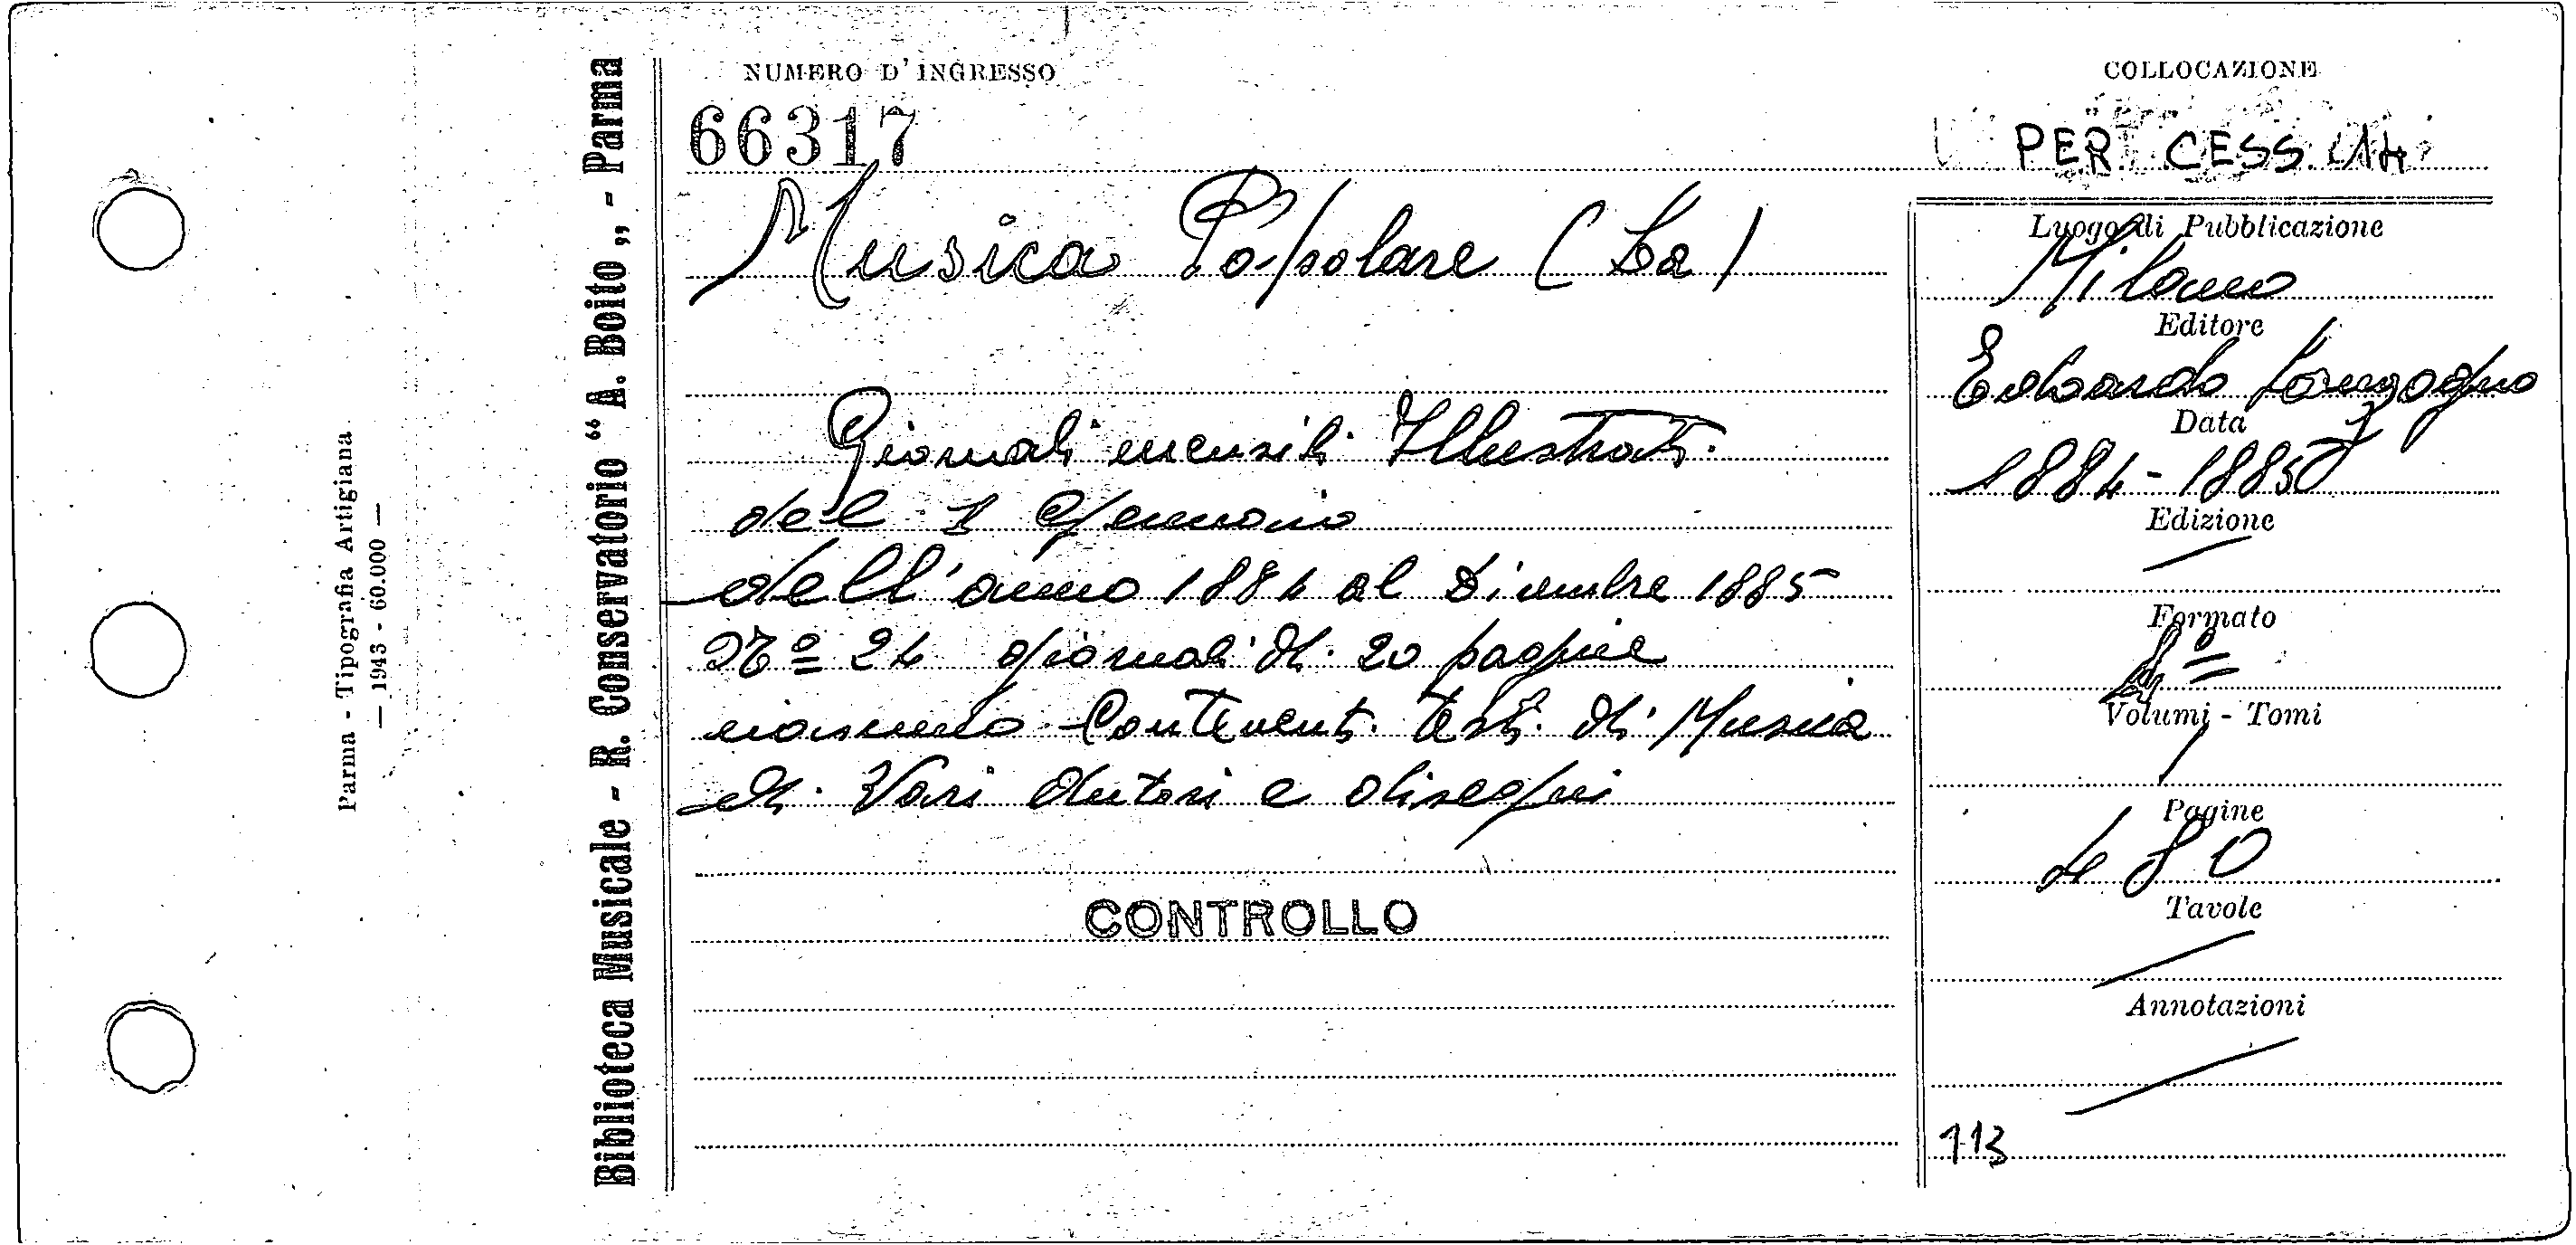 NUMERO D'INGRESSO
66317
COLLOCAZIONE
PER CESS 14
Musica Popolare (La)
Giornali mensili Illustrati
del 1 Gennaio
dell'anno 1884 al Dicembre 1885
N° 24 giornali di 20 pagine
ciascuno Contenenti testi di Musica
di Vari Autori e disegni
CONTROLLO
Luogo di Pubblicazione
Milano
Editore
Edoardo Sonzogno
Data
1884-1885
Edizione
Formato
Volumi - Tomi
1
Pagine
480
Tavole
Annotazioni
113
Biblioteca Musicale - R. Conservatorio “A. Boito„ - Parma
Parma - Tipografia Artigiana
— 1943 - 60.000 —